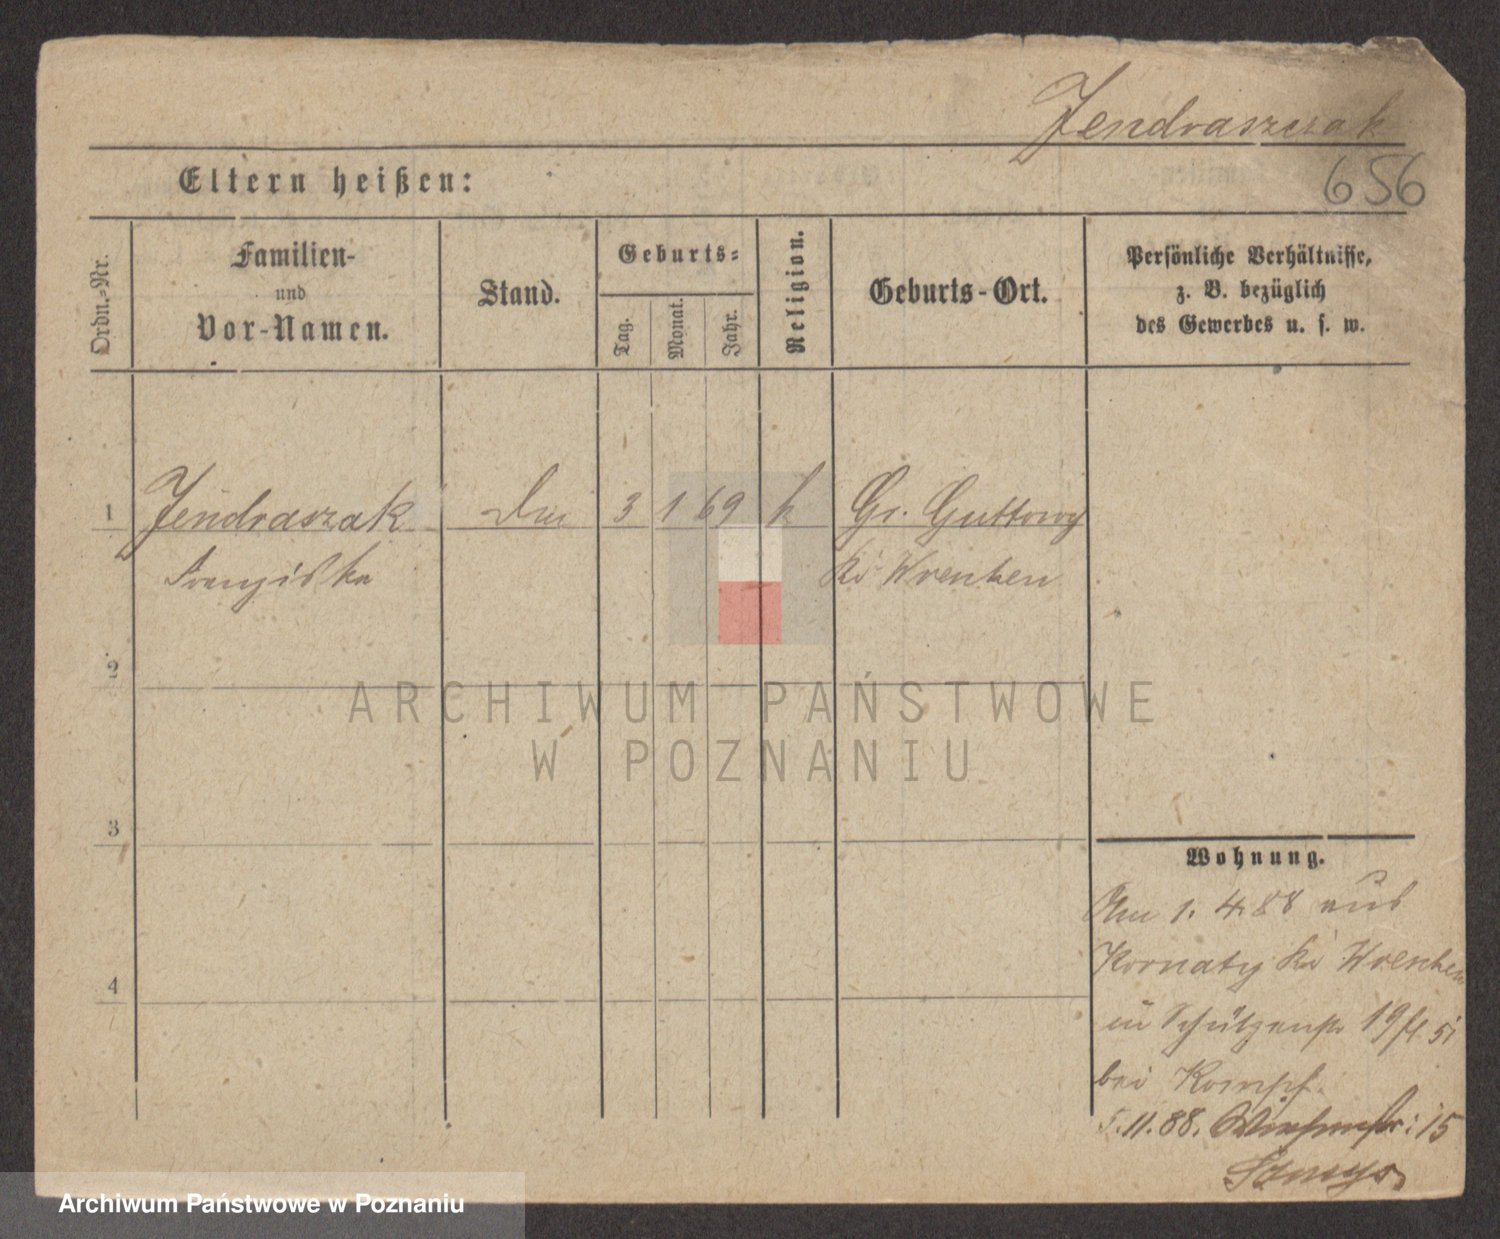 Jendraszak
656
Eltern heißen:
Ordn.-Nr.
Familien-
und
Vor-Namen.
Stand.
Geburts-
Tag.
Monat.
Jahr.
Religion.
Geburts-Ort.
Persönliche Verhältnisse,
z. B. bezüglich
des Gewerbes u. s. w.
1 Jendraszak 3 1 69 k Gr. Guttowy
Franziska Kr Wreschen
2
ARCHIWUM PAŃSTWOWE
W POZNANIU
3
4
Wohnung.
Am 1. 4. 88 aus
Kornaty Kr Wreschen
in Schützenstr 19
bei
5. 11. 88. 15
Archiwum Państwowe w Poznaniu